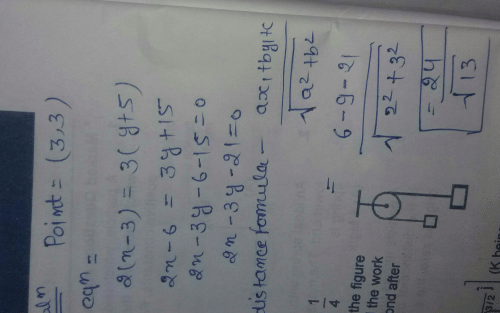 Point = (3,3)
eqn =
2(x-3) = 3(y+5)
2x-6 = 3y+15
2x-3y-6-15=0
2x-3y-21=0
distance formula - ax₁+by₁+c
√a²+b²
= 6-9-21
√2²+3²
= 24
√13
1
4
the figure
the work
ond after